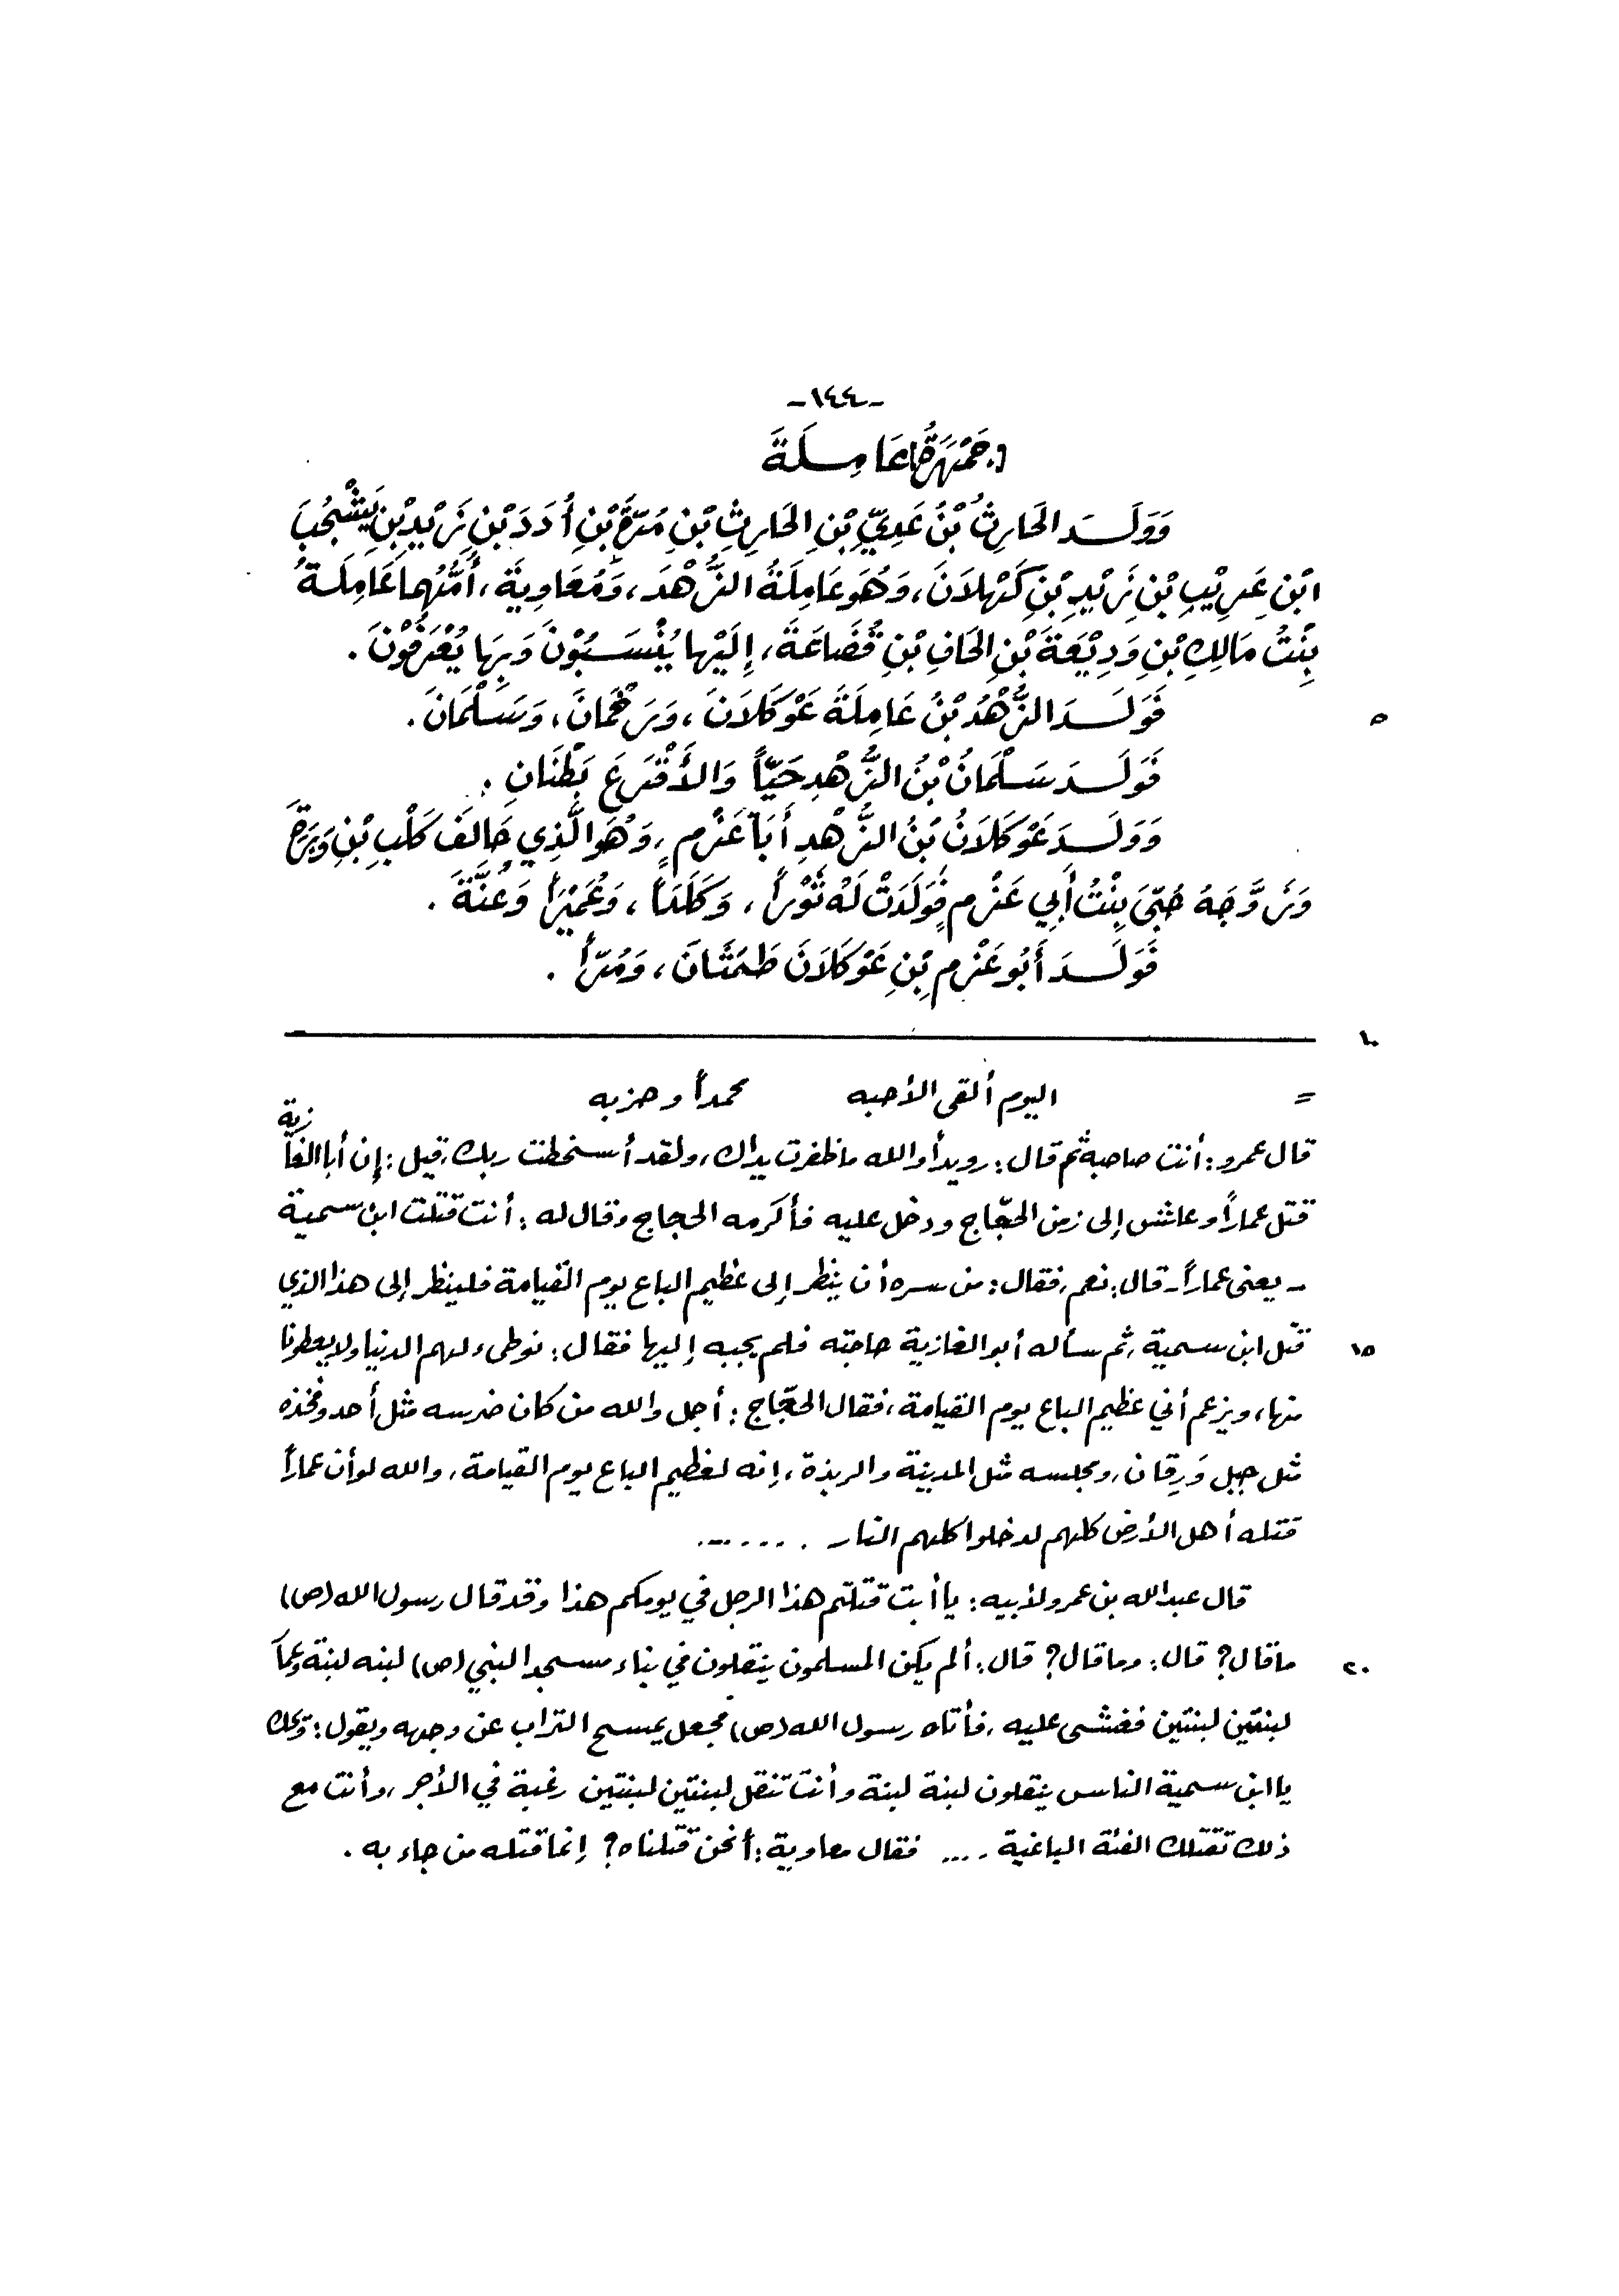 -١٤٤-
١. جَمْهَرَةُ عَامِلَةَ
وَوَلَدَ الحَارِثُ بْنُ عَدِيِّ بْنِ الحَارِثِ بْنِ مُرَّةَ بْنِ أُدَدَ بْنِ زَيْدِ بْنِ يَشْجُبَ
ابْنِ عَرِيْبِ بْنِ زَيْدِ بْنِ كَهْلاَنَ، وَهُوَ عَامِلَةُ الزُّهْدَ، وَمُعَاوِيَةَ، أُمُّهُما عَامِلَةُ
بِنْتُ مَالِكِ بْنِ وَدِيْعَةَ بْنِ الحَافِ بْنِ قُضَاعَةَ، إِلَيْها يُنْسَبُوْنَ وَبِهَا يُعْرَفُوْنَ.
فَوَلَدَ الزُّهْدُ بْنُ عَامِلَةَ عَوْكَلاَنَ، وَرَخْمَانَ، وَسَلْمَانَ.
٥
فَوَلَدَ سَلْمَانُ بْنُ الزُّهْدِ حَيّاً وَالأَقْرَعَ بَطْنَانِ.
وَوَلَدَ عَوْكَلاَنُ بْنُ الزُّهْدِ أَبَا عَزْمٍ، وَهُوَ الَّذِي حَالَفَ كَلْبِ بْنِ وَبَرَةَ
وَزَوَّجَهُ حُبَّى بِنْتُ أَبِي عَزْمٍ فَوَلَدَتْ لَهُ ثَوْراً، وَكَلَدَاً، وَعُمَيْرَاً وَعُنَّةَ.
فَوَلَدَ أَبُو عَزْمِ بْنِ عَوْكَلاَنَ طَمَثَانَ، وَمُرّاً.
١٠
= اليوم ألقى الأحبه محمداً وحزبه
قال عمرو: أنت صاحبة ثم قال: رويداً والله ما ظفرت يداك، ولقد أسخطت ربك، قيل: إن أبا الغازية
قتل عماراً وعاش إلى زمن الحجّاج ودخل عليه فأكرمه الحجاج وقال له: أنت قتلت ابن سمية
- يعني عماراً - قال: نعم، فقال: من سره أن ينظر إلى عظيم الباع يوم القيامة فلينظر إلى هذا الذي
١٥ قتل ابن سمية، ثم سأله أبو الغازية حاجته فلم يجبه إليها فقال: نوطىء لهم الدنيا ولا يعطونا
منها، ويزعم أني عظيم الباع يوم القيامة، فقال الحجّاج: أجل والله من كان ضرسه مثل أحد وفخذه
مثل جبل وَرِقان، ومجلسه مثل المدينة والربذة، إنه لعظيم الباع يوم القيامة، والله لو أن عماراً
قتله أهل الأرض كلهم لدخلوا كلهم النار ........
قال عبد الله بن عمرو لأبيه: يا أبت قتلتم هذا الرجل في يومكم هذا وقد قال رسول الله (ص)
٢٠ ما قال؟ قال: وما قال؟ قال: ألم يكن المسلمون ينقلون في بناء مسجد النبي (ص) لبنه لبنة وعمار
لبنتين لبنتين فغشى عليه، فأتاه رسول الله (ص) فجعل يمسح التراب عن وجهه ويقول: ويحك
يا ابن سمية الناس ينقلون لبنة لبنة وأنت تنقل لبنتين لبنتين رغبة في الأجر، وأنت مع
ذلك تقتلك الفئة الباغية .... فقال معاوية: أنحن قتلناه؟ إنما قتله من جاء به.